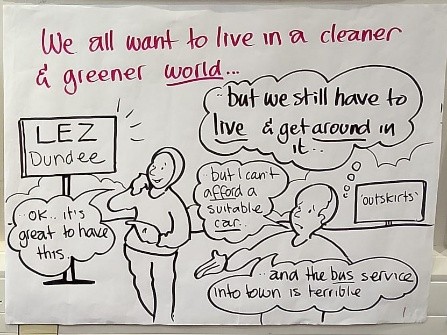 We all want to live in a cleaner
& greener world...
..but we still have to
live & get around in
it...
LEZ
Dundee
..but I can't
afford a
suitable
car..
'outskirts'
..ok.. it's
great to have
this..
..and the bus service
into town is terrible